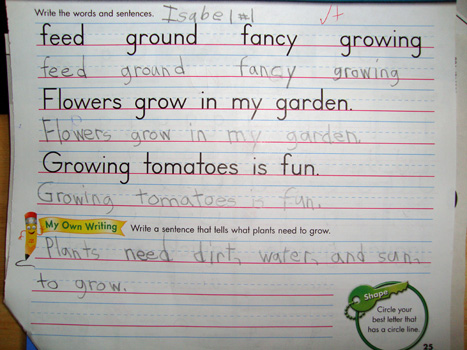 Write the words and sentences. Isabel #1
feed ground fancy growing
feed ground fancy growing
Flowers grow in my garden.
Flowers grow in my garden.
Growing tomatoes is fun.
Growing tomatoes is fun.
My Own Writing Write a sentence that tells what plants need to grow.
Plants need dirt, water, and sun,
to grow.
Shape
Circle your
best letter that
has a circle line.
25